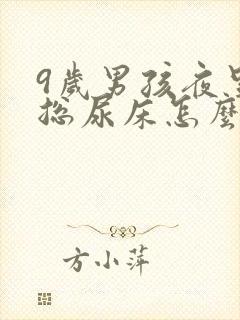 9歲男孩夜里
总尿床怎麼
方小萍